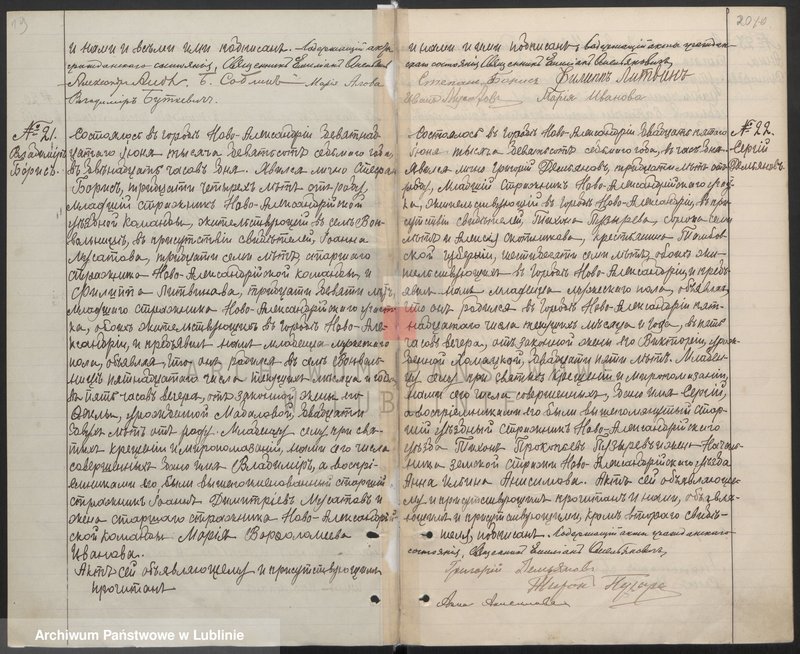 19
и нами и всѣми ими подписанъ. Содержащій акты
гражданскаго состоянія, Священникъ
Марія
Владиміръ Буткевичъ.
№ 21.
Владиміръ
Борисъ.
Состоялось въ городѣ Ново-Александріи девятнад-
цатаго Іюня тысяча девятьсотъ седьмого года,
въ двѣнадцать часовъ дня. Явился лично Степанъ
Борисъ, тридцати четырехъ лѣтъ отъ роду,
младшій стражникъ Ново-Александрійской
уѣздной команды, жительствующій въ селѣ Вон-
вольницѣ, въ присутствіи свидѣтелей, Іоанна
Мусатова, тридцати семи лѣтъ старшаго
стражника Ново-Александрійской команды, и
Филиппа Литвинова, тридцати девяти лѣтъ,
младшаго стражника Ново-Александрійскаго участ-
ка, обоихъ жительствующихъ въ городѣ Ново-Але-
ксандріи, и предъявилъ намъ младенца мужескаго
пола, объявляя, что онъ родился въ селѣ Вонволь-
ницѣ пятнадцатаго числа текущихъ мѣсяца и года,
въ пять часовъ вечера, отъ законной жены его
урожденной двадцати
двухъ лѣтъ отъ роду. Младенцу сему при свя-
томъ крещеніи и миропомазаніи, нами сего числа
совершенныхъ дано имя Владиміръ, а воспрі-
емниками его были вышепоименованный старшій
стражникъ Іоаннъ Димитріевъ Мусатовъ и
жена старшаго стражника Ново-Александрій-
ской команды Марія Варѳоломеева
Иванова.
Актъ сей объявляющему и присутствующимъ
прочитанъ
20
и нами и ими подписанъ, содержащій акты граждан-
скаго состоянія, Священникъ
Степанъ Борисъ Филиппъ Литвинъ
Марія Иванова
№ 22.
Сергій
Демьяновъ.
Состоялось въ городѣ Ново-Александріи двадцать пятаго
Іюня тысяча девятьсотъ седьмого года, въ часъ дня.
Явился лично Григорій Демьяновъ, тридцати лѣтъ отъ
роду, младшій Стражникъ Ново-Александрійскаго уча-
стка, жительствующій въ городѣ Ново-Александріи, въ при-
сутствіи свидѣтелей, Тихона Пузырева, сорока семи
лѣтъ и Алексія крестьянина Тамбов-
ской губерніи, шестидесяти семи лѣтъ, обоихъ жи-
тельствующихъ въ городѣ Ново-Александріи, и предъ-
явилъ намъ младенца мужескаго пола, объявляя,
что онъ родился въ городѣ Ново-Александріи пят-
надцатаго числа текущихъ мѣсяца и года, въ пять
часовъ вечера, отъ законной жены его Викторіи, урож-
денной двадцати пяти лѣтъ. Младен-
цу сему при святомъ крещеніи и миропомазаніи,
нами сего числа совершенныхъ, дано имя Сергій,
а воспріемниками его были вышепомянутый Стар-
шій уѣздный Стражникъ Ново-Александрійскаго
уѣзда Тихонъ Прокопіевъ Пузыревъ и жена Началь-
ника земской стражи Ново-Александрійскаго уѣзда
Анна Ильина Анисимова. Актъ сей объявляюще-
му и присутствующимъ прочитанъ и нами, объявля-
ющимъ и присутствующими, кромѣ втораго свидѣ-
теля, подписанъ. Содержащій акты гражданскаго
состоянія, Священникъ
Григорій Демьяновъ
Анна Анисимова
ARCHIWUM PAŃSTWOWE
W LUBLINIE
Archiwum Państwowe w Lublinie